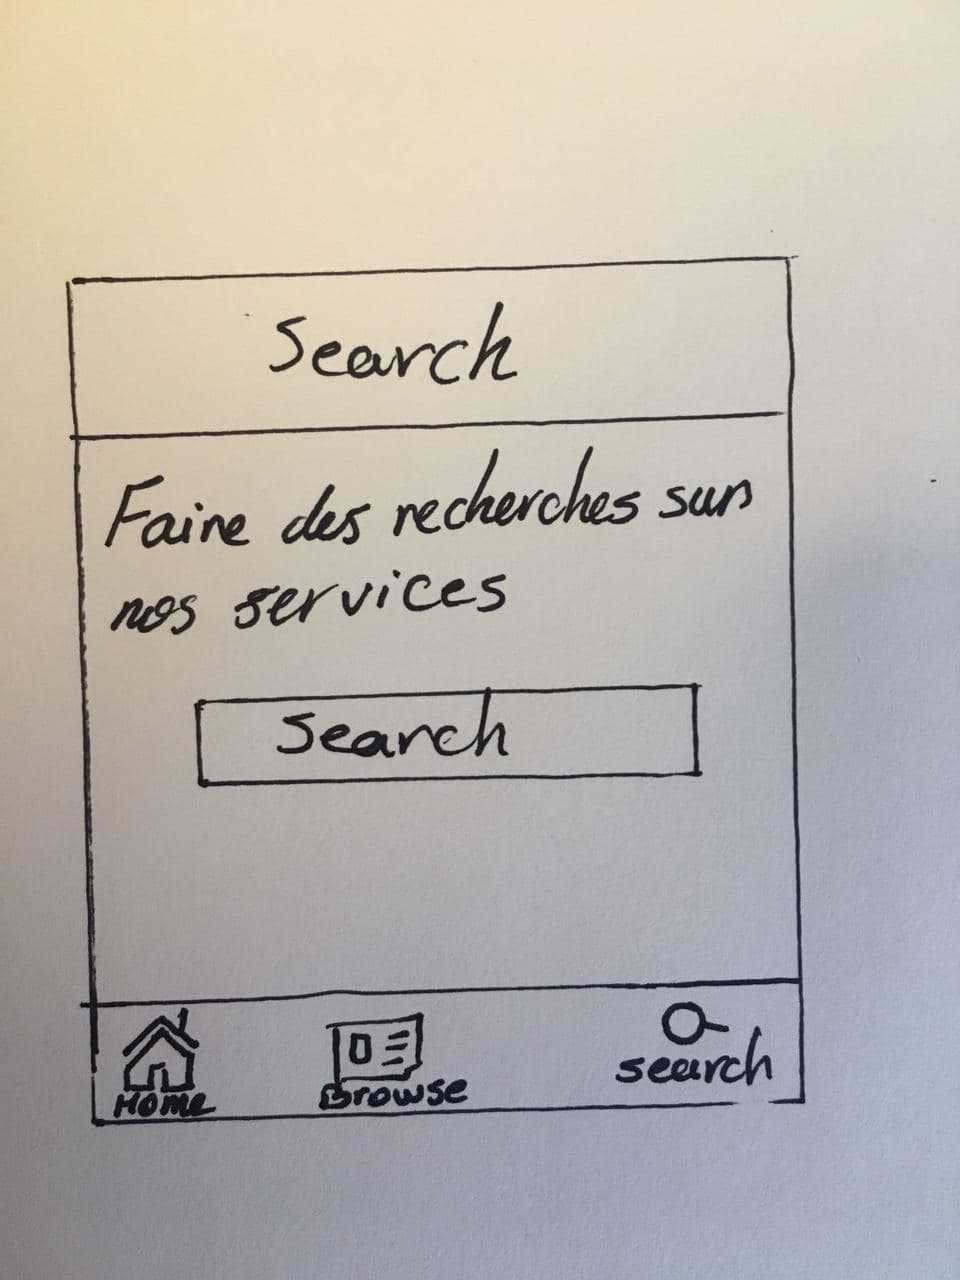 Search
Faire des recherches sur
nos services
Search
Home
Browse
search